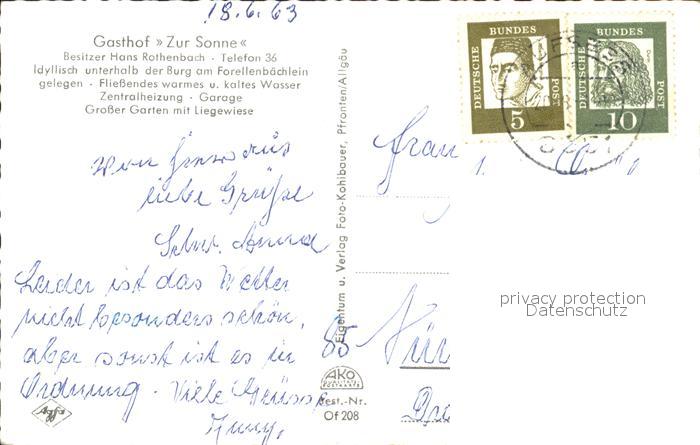 18.6.63
Gasthof »Zur Sonne«
Besitzer Hans Rothenbach · Telefon 36
Idyllisch unterhalb der Burg am Forellenbächlein
gelegen · Fließendes warmes u. kaltes Wasser
Zentralheizung · Garage
Großer Garten mit Liegewiese
von hier aus
liebe Grüße
Schw. Anna
Leider ist das Wetter
nicht besonders schön,
aber sonst ist es in
Ordnung. Viele Grüsse
Agfa
Eigentum u. Verlag Foto-Kohlbauer, Pfronten/Allgäu
DEUTSCHE BUNDES POST
5
DEUTSCHE BUNDES POST
10
Frau
85
AKO
Best.-Nr.
Of 208
privacy protection
Datenschutz